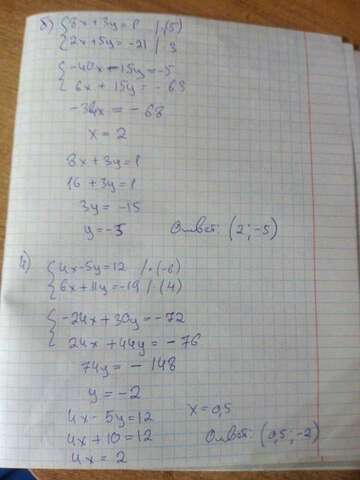 б) { 8x + 3y = 1 | (-5)
{ 2x + 5y = -21 | 3
{ -40x - 15y = -5
{ 6x + 15y = -63
-34x = -68
x = 2
8x + 3y = 1
16 + 3y = 1
3y = -15
y = -5 Ответ: (2; -5)
{ 4x - 5y = 12 | ·(-6)
{ 6x + 11y = -19 | ·(4)
{ -24x + 30y = -72
{ 24x + 44y = -76
74y = -148
y = -2
4x - 5y = 12 x = 0,5
4x + 10 = 12 Ответ: (0,5; -2)
4x = 2